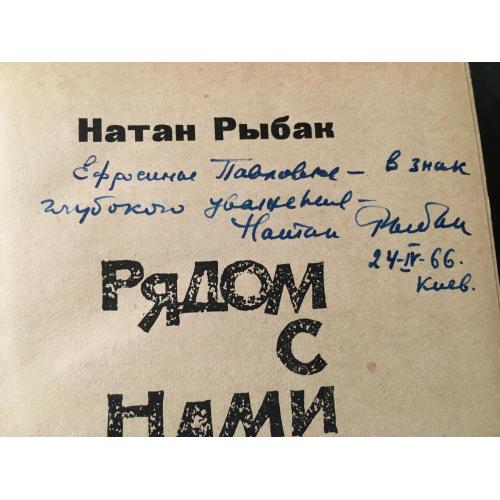 Натан Рыбак
Ефросинье Павловне – в знак
глубокого уважения –
Натан Рыбак
24-IV-66.
Киев.
РЯДОМ
С
НАМИ